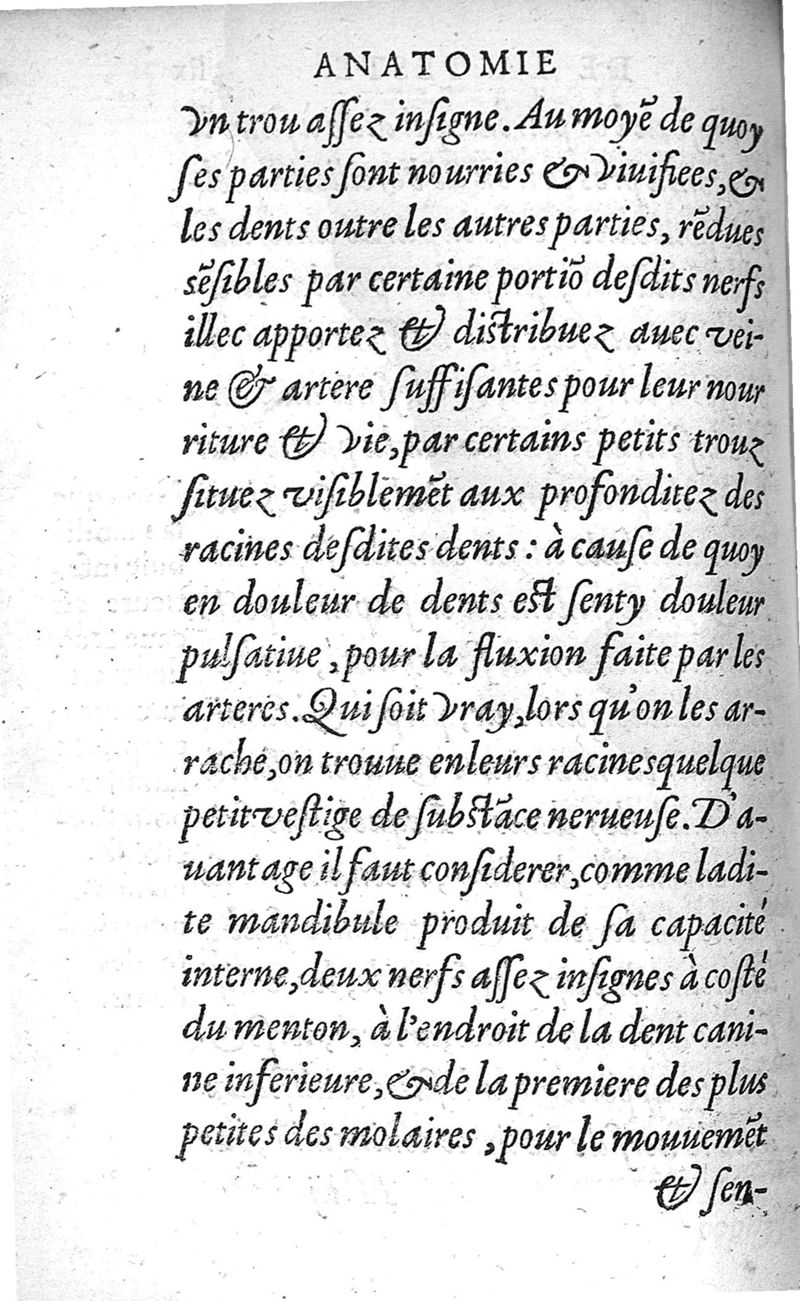 ANATOMIE
vn trou assez insigne. Au moyẽ de quoy
ses parties sont nourries & viuifiees, &
les dents outre les autres parties, rẽdues
sẽsibles par certaine portiõ desdits nerfs
illec apportez & distribuez auec vei-
ne & artere suffisantes pour leur nour
riture & vie, par certains petits trouz
situez visiblemẽt aux profonditez des
racines desdites dents : à cause de quoy
en douleur de dents est senty douleur
pulsatiue, pour la fluxion faite par les
arteres. Qui soit vray, lors qu'on les ar-
rache, on trouue en leurs racines quelque
petit vestige de substãce nerueuse. D'a-
uantage il faut considerer, comme ladi-
te mandibule produit de sa capacité
interne, deux nerfs assez insignes à costé
du menton, à l'endroit de la dent cani-
ne inferieure, & de la premiere des plus
petites des molaires, pour le mouuemẽt
& sen-